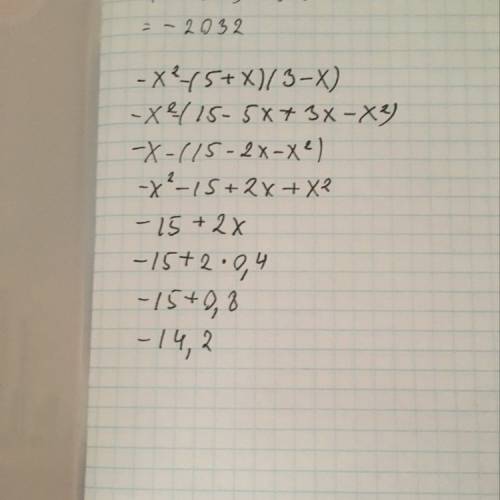 = - 2032
-x²-(5+x)(3-x)
-x²-(15-5x+3x-x²)
-x-(15-2x-x²)
-x²-15+2x+x2
-15+2x
-15+2·0,4
-15+0,8
-14,2